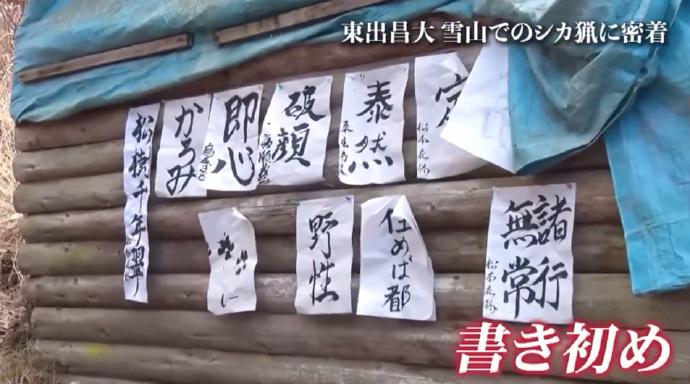 東出昌大 雪山でのシカ猟に密着
松樹千年翠
かろみ
即心
破顔
泰然
野性
住めば都
諸行
無常
書き初め